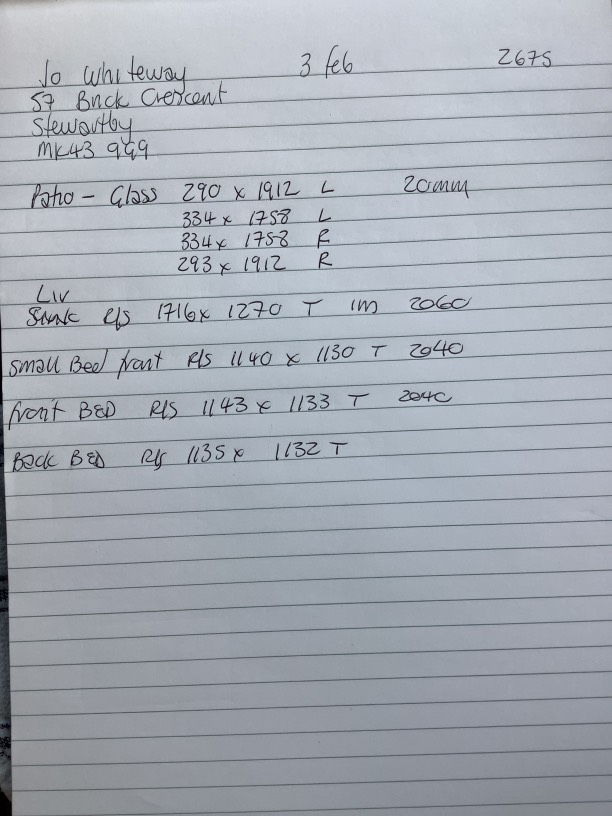 Jo Whiteway 3 feb 2675
57 Brick Crescent
Stewartby
MK43 9G9
Patio - Glass 290 x 1912 L 20mm
334 x 1758 L
334 x 1758 R
293 x 1912 R
Liv
R/S 1716 x 1270 T 1m 2060
Small Bed front R/S 1140 x 1130 T 2040
front BED R/S 1143 x 1133 T 2040
Back BED R/S 1135 x 1132 T